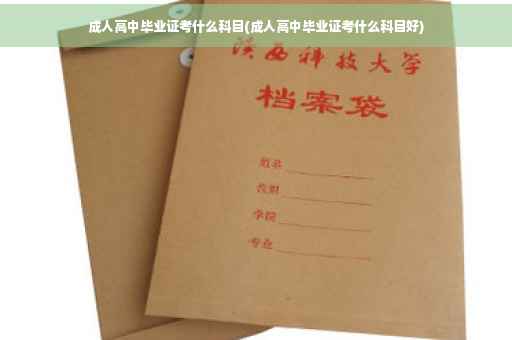 成人高中毕业证考什么科目(成人高中毕业证考什么科目好)
陕西科技大学
档案袋
姓名
学院
专业